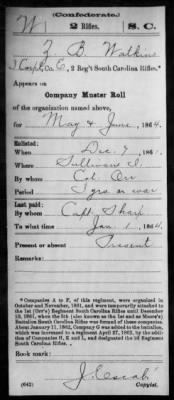 (Confederate.)
W 2 Rifles. S. C.
Z B Watkins
Corpl, Co. C, 2 Reg't South Carolina Rifles.*
Appears on
Company Muster Roll
of the organization named above,
for May & June, 1864.
Enlisted:
When Dec. 9, 186
Where Sullivans I.
By whom Col. Orr
Period 3 yrs or war
Last paid:
By whom Capt. Sharp
To what time Jan 1, 1864.
Present or absent Present
Remarks:
*Companies A to F, of this regiment, were organized in
October and November, 1861, and were temporarily attached to
the 1st (Orr's) Regiment South Carolina Rifles until December
Battalion South Carolina Rifles was formed of these companies.
About January 11, 1862, Company G was added to the battalion,
which was increased to a regiment April 27, 1862, by the addi-
tion of Companies H, I and K, and designated the 2d Regiment
South Carolina Rifles.
Book mark:
(642) Copyist.